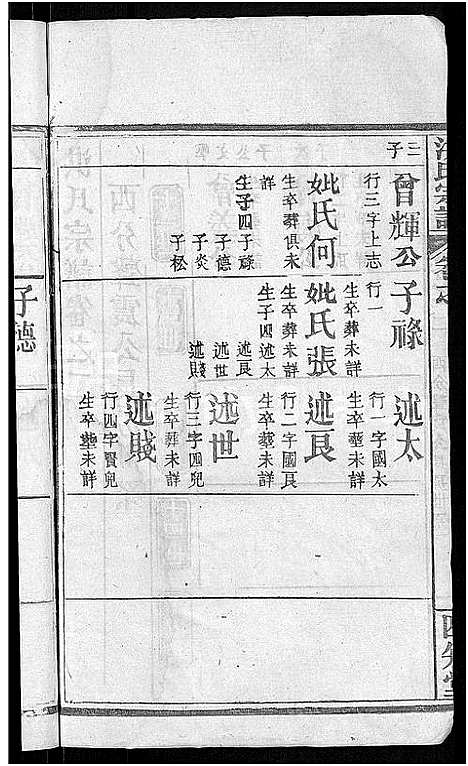 氏宗譜
三子
曾輝公
行三字上志
妣氏何
生卒葬俱未
詳
生子四子祿
子德
子炎
子松
子祿
行一
生卒葬未詳
妣氏張
生卒葬未詳
生子四述太
述艮
述世
述賤
述太
行一字國太
生卒塟未詳
述艮
行二字國艮
生卒塟未詳
述世
行三字四兒
生卒葬未詳
述賤
行四字賢兒
生卒塟未詳
子德